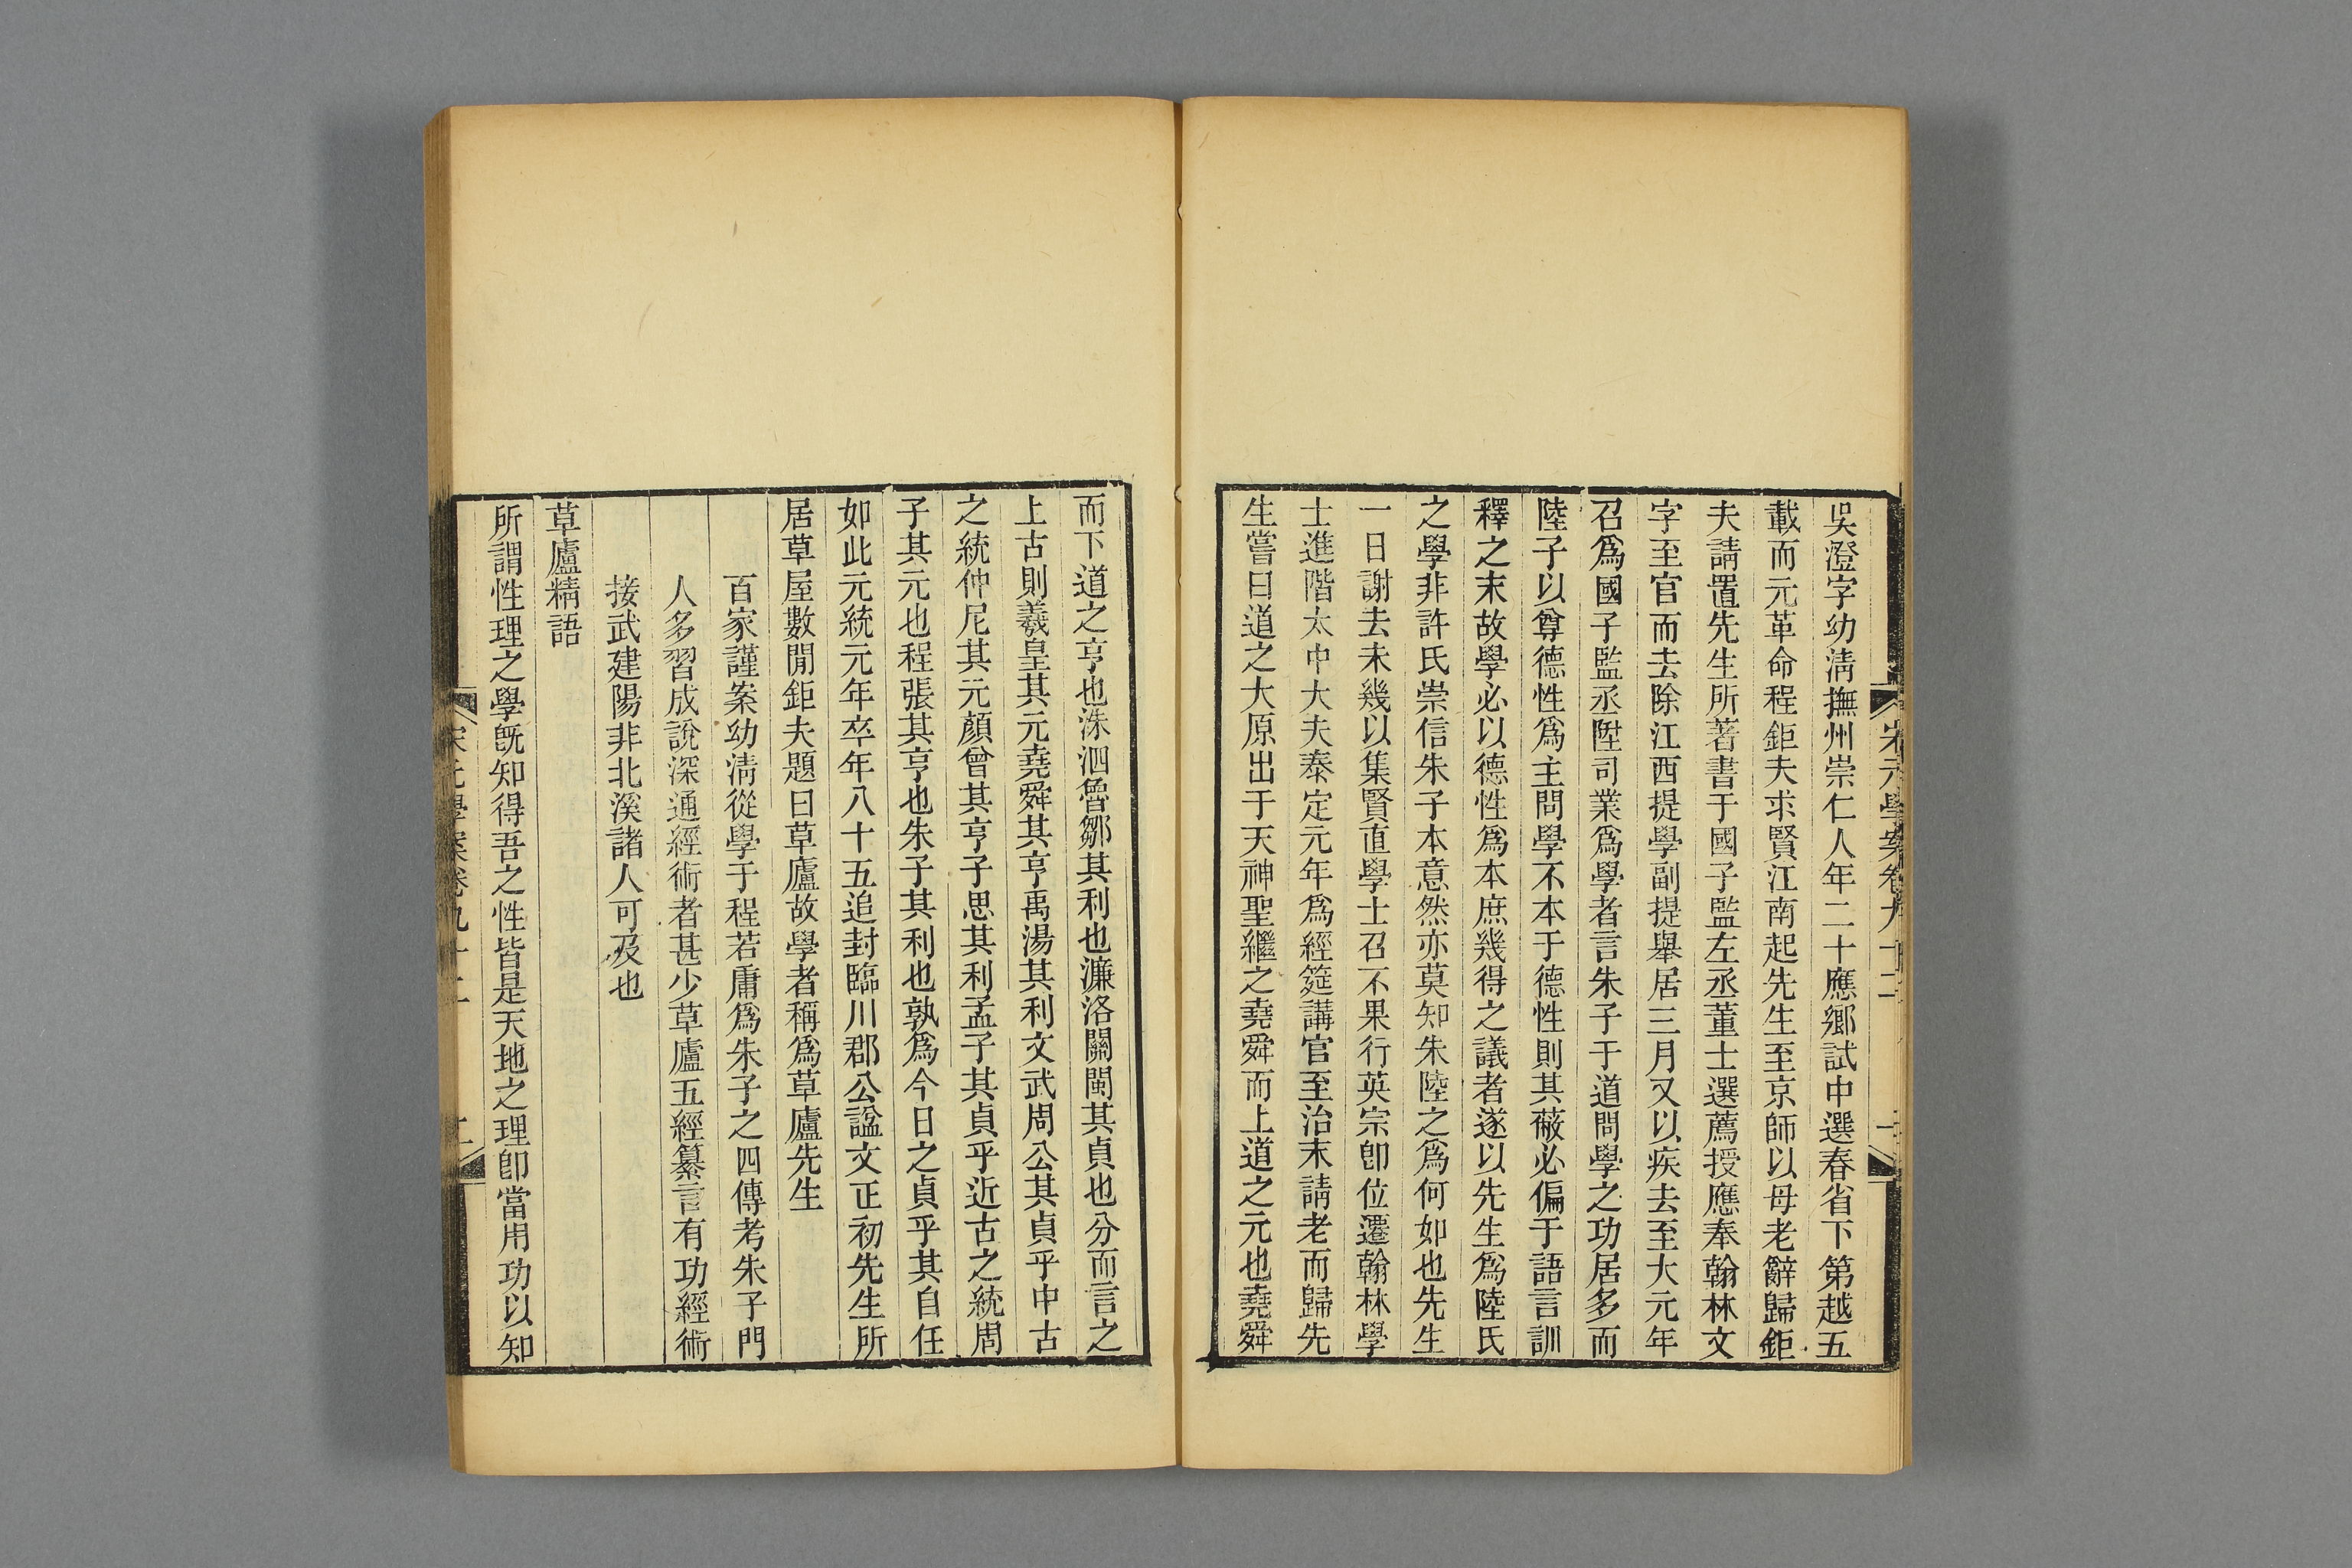 吳澄字幼淸撫州崇仁人年二十應鄉試中選春省下第越五
載而元革命程鉅夫求賢江南起先生至京師以母老辭歸鉅
夫請置先生所著書于國子監左丞董士選薦授應奉翰林文
字至官而去除江西提學副提舉居三月又以疾去至大元年
召爲國子監丞陞司業爲學者言朱子于道問學之功居多而
陸子以尊德性爲主問學不本于德性則其蔽必偏于語言訓
釋之末故學必以德性爲本庶幾得之議者遂以先生爲陸氏
之學非許氏崇信朱子本意然亦莫知朱陸之爲何如也先生
一日謝去未幾以集賢直學士召不果行英宗卽位遷翰林學
士進階太中大夫泰定元年爲經筵講官至治末請老而歸先
生嘗曰道之大原出于天神聖繼之堯舜而上道之元也堯舜
而下道之亨也洙泗魯鄒其利也濂洛關閩其貞也分而言之
上古則羲皇其元堯舜其亨禹湯其利文武周公其貞乎中古
之統仲尼其元顏曾其亨子思其利孟子其貞乎近古之統周
子其元也程張其亨也朱子其利也孰爲今日之貞乎其自任
如此元統元年卒年八十五追封臨川郡公諡文正初先生所
居草屋數閒鉅夫題曰草廬故學者稱爲草廬先生
百家謹案幼淸從學于程若庸爲朱子之四傳考朱子門
人多習成說深通經術者甚少草廬五經纂言有功經術
接武建陽非北溪諸人可及也
草廬精語
所謂性理之學旣知得吾之性皆是天地之理卽當用功以知
宋元學案卷九十二
二